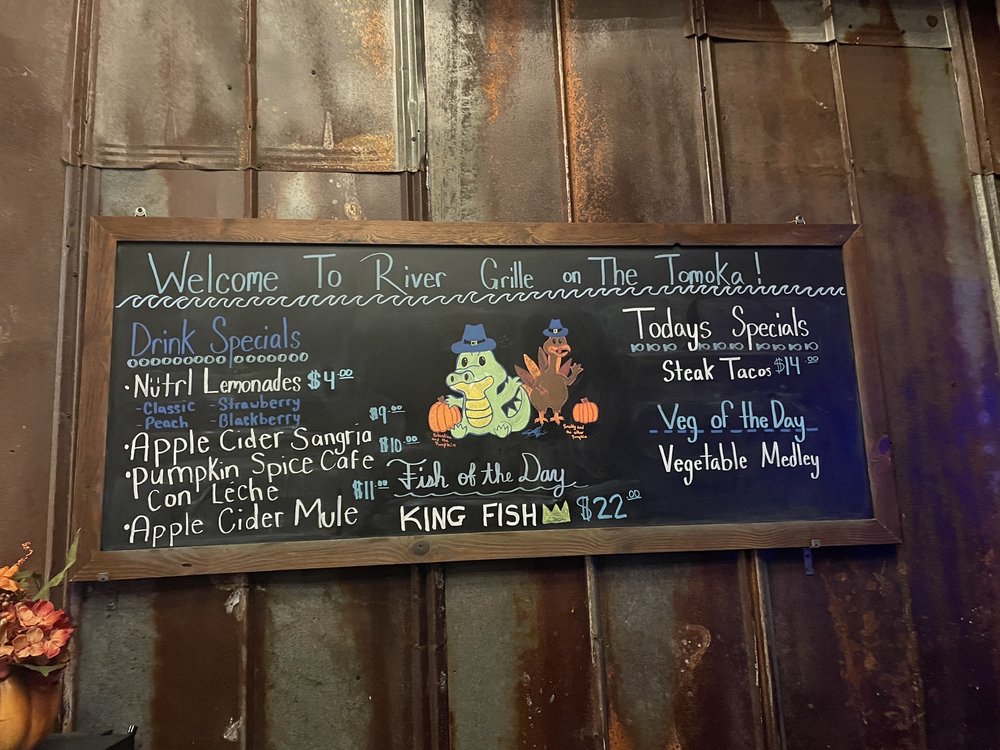 Welcome To River Grille on The Tomoka!
Drink Specials
·Nütrl Lemonades $4.00
-Classic -Strawberry
-Peach -Blackberry
·Apple Cider Sangria $9.00
·Pumpkin Spice Cafe Con Léche $10.00
·Apple Cider Mule $11.00
and the Pumpkin
and the other Pumpkin
Fish of the Day
KING FISH $22.00
Todays Specials
Steak Tacos $14.00
Veg of the Day
Vegetable Medley